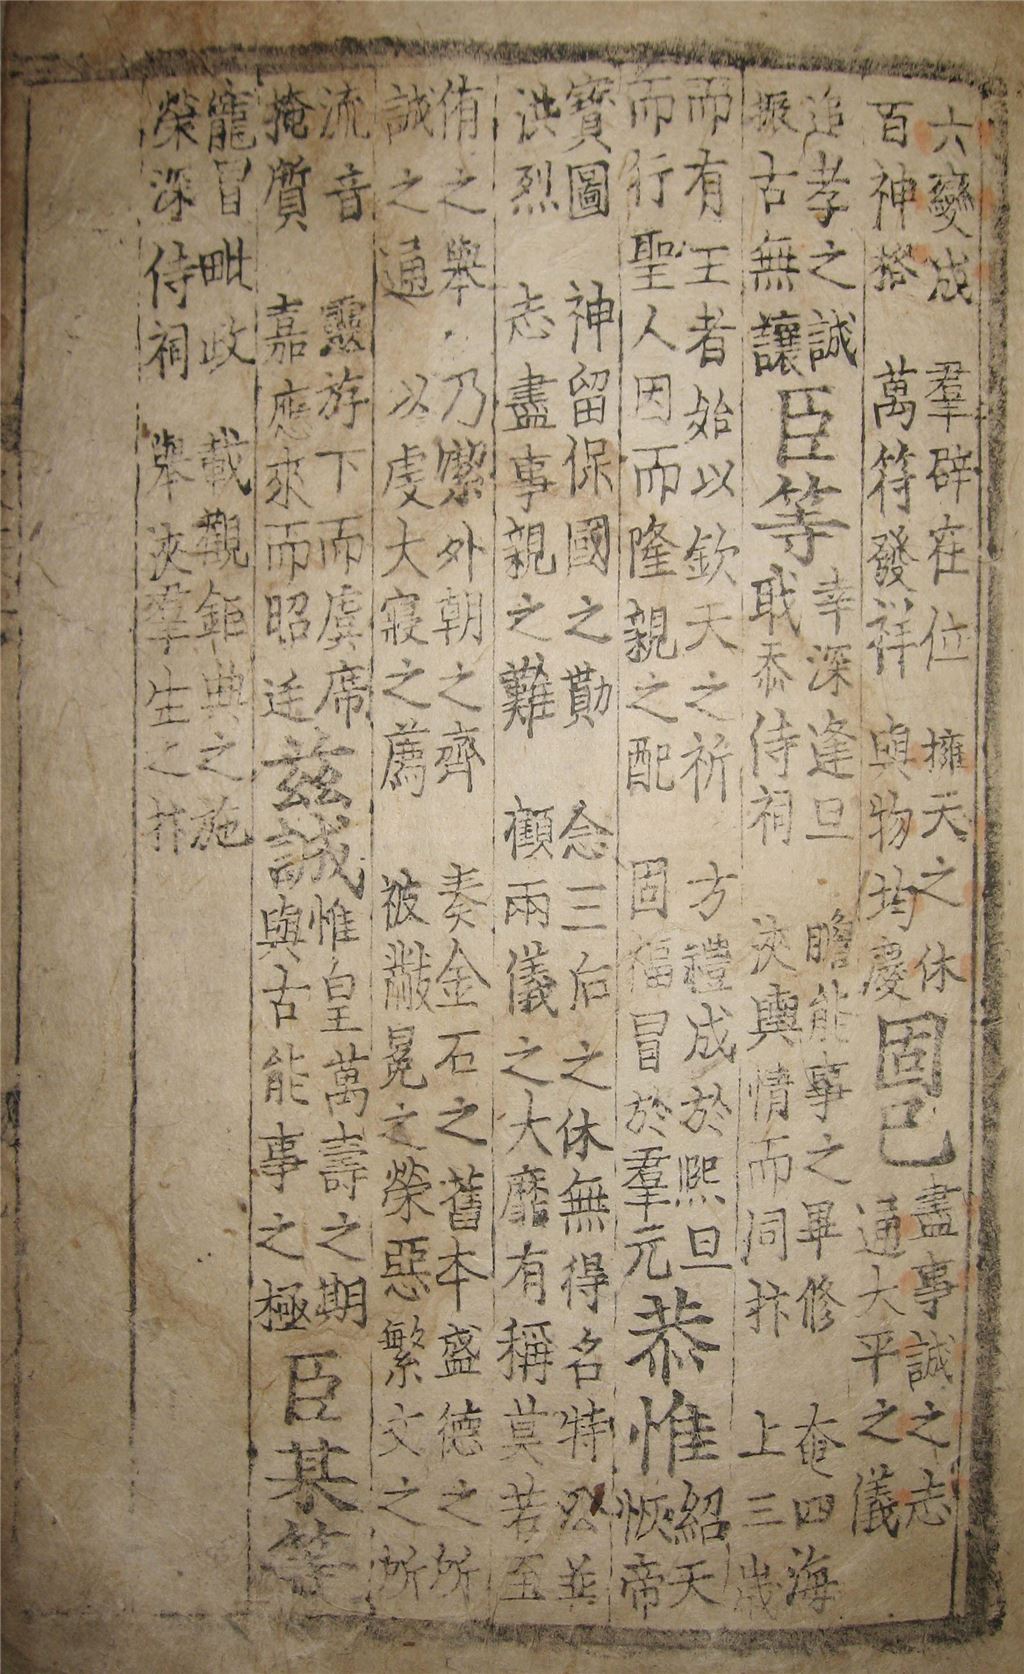 六變成　羣辟在位　擁天之休
百神搭　萬符發祥　與物均慶
固已
盡事誠之志
通大平之儀
追孝之誠
振古無讓
臣等
幸深逢旦　瞻能事之畢修　奄四海
戢忝侍祠　浹輿情而同抃　上三歲
而有王者始以欽天之祈　方禮成於熙旦
而行聖人因而隆親之配　固福冒於羣元
恭惟
紹天
恢帝
寶圖　神留保國之勤　念三后之休無得名特公並
洪烈　志盡事親之難　顧兩儀之大靡有稱莫若至
侑之舉　乃潔外朝之齊　奏金石之舊本盛德之所
誠之通　以虔大寢之薦　被黻冕之榮惡繁文之所
流音　靈游下而虞席
掩質　嘉應來而昭迋
茲誠
惟皇萬壽之期
與古能事之極
臣某等
寵冒毗政　載觀鉅典之施
榮深侍祠　舉浹羣生之抃